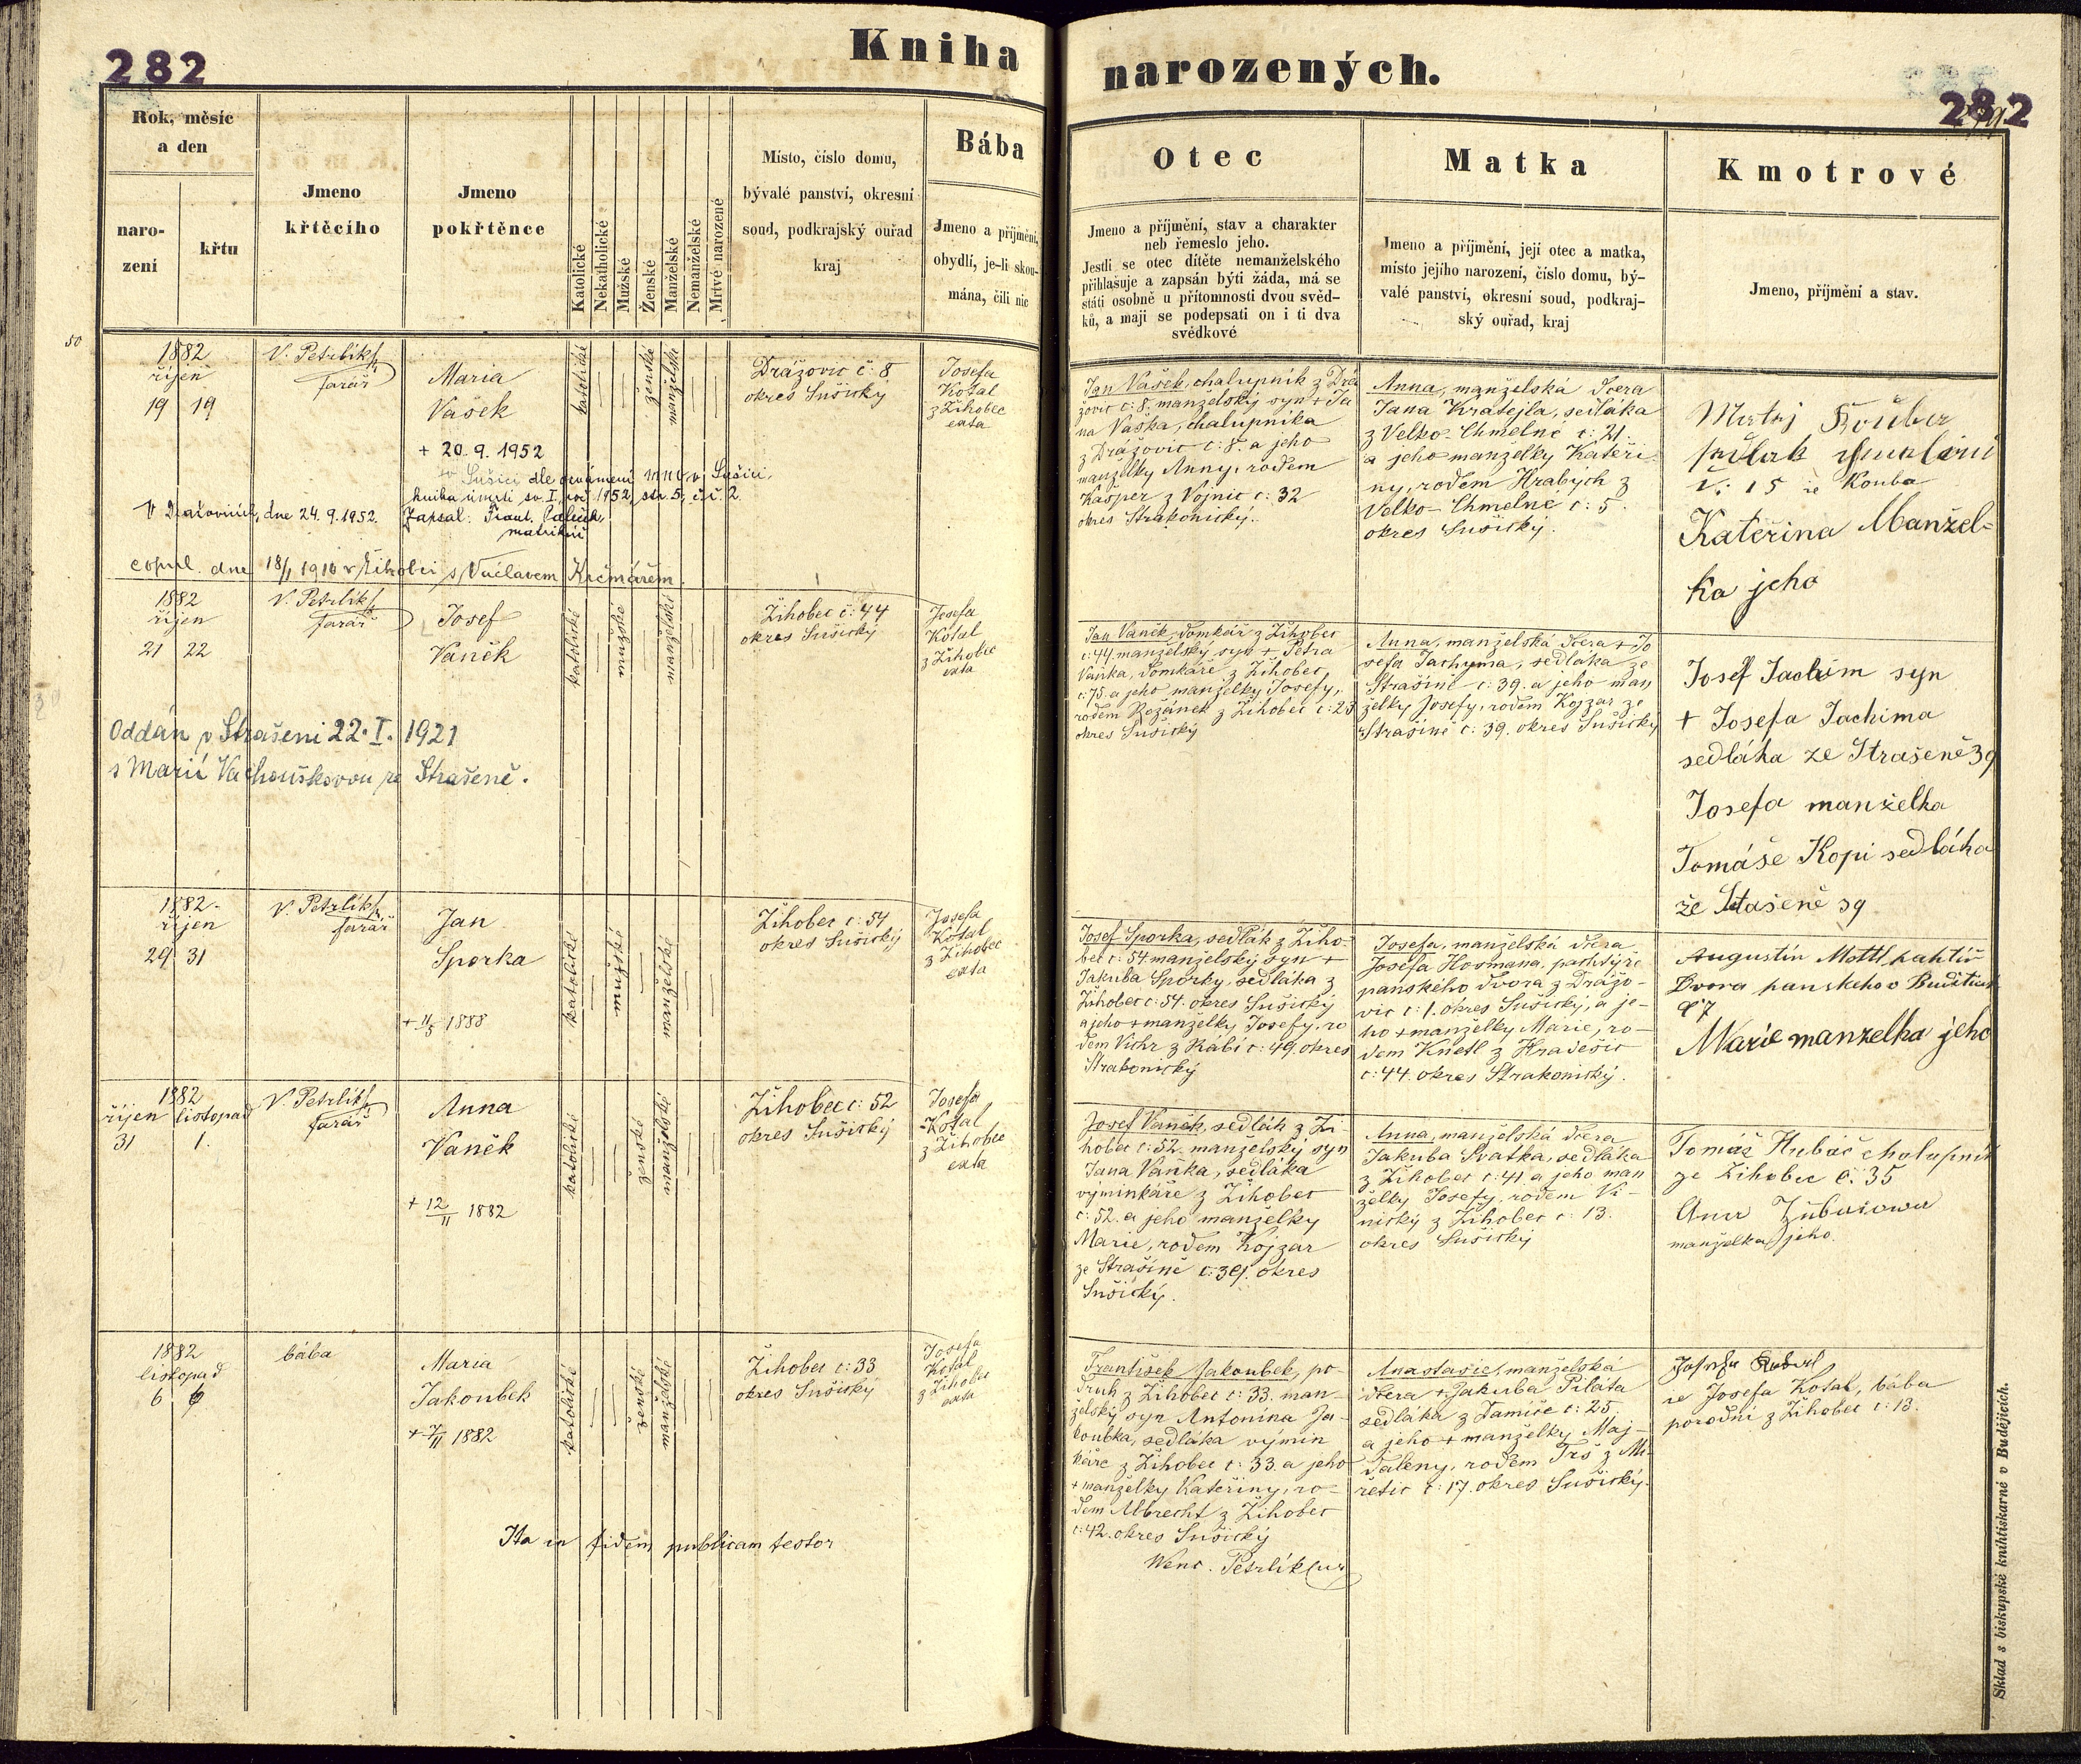 282
Kniha
narozených.
282
Rok, měsíc
a den
naro-
zení
křtu
Jmeno
křtěcího
Jmeno
pokřtěnce
Katolické
Nekatholické
Mužské
Ženské
Manželské
Nemanželské
Mrtvé narozené
Místo, číslo domu,
bývalé panství, okresní
soud, podkrajský ouřad
kraj
Bába
Jmeno a příjmění,
obydlí, je-li skou-
mána, čili nic
Otec
Jmeno a příjmění, stav a charakter
neb řemeslo jeho.
Jestli se otec dítěte nemanželského
přihlašuje a zapsán býti žáda, má se
státi osobně u přítomnosti dvou svěd-
ků, a mají se podepsati on i ti dva
svědkové
Matka
Jmeno a příjmění, její otec a matka,
místo jejího narození, číslo domu, bý-
valé panství, okresní soud, podkraj-
ský ouřad, kraj
Kmotrové
Jmeno, příjmění a stav.
50
1882
říjen
19 19
V. Petrlík
farář
Maria
Vašek
+ 20. 9. 1952
v Sušici dle oznámení MNV v Sušici,
kniha úmrtí sv. I, roč. 1952, str. 5, č. ř. 2.
V Dražovicích, dne 24. 9. 1952. Zapsal:
matrikář
copul. dne 18/1 1910 v Žihobci s Václavem Krčmářem.
katolické
ženské
manželské
Drážovic č: 8
okres Sušický
Josefa
Kotal
z Žihobec
exta
Jan Vašek, chalupník z Drá
žovic č: 8. manželský syn + Ja
na Vaška, chalupníka
z Drážovic č: 8. a jeho
manželky Anny, rodem
Kašper z Vojnic č: 32
okres Strakonický.
Anna, manželská dcera
Jana Kratejla, sedláka
z Velko-Chmelné č: 21.
a jeho manželky Kateři-
ny, rodem Hrabých z
Velko-Chmelné č: 5.
okres Sušický.
Matěj Kouba
č: 15 ie Kouba
Kateřina Manžel-
ka jeho
1882
říjen
21 22
V. Petrlík
farář
Josef
Vaněk
Oddán v Strašeni 22. I. 1921
s Marií Vachouškovou ze Strašeně.
katolické
mužské
manželské
Žihobec č: 44
okres Sušický
Josefa
Kotal
z Žihobec
exta
Jan Vaněk, domkář z Žihobec
č: 44 manželský syn + Petra
Vaňka, domkáře z Žihobec
č: 75. a jeho manželky Josefy,
rodem Rožánek z Žihobec č: 23
okres Sušický
Anna, manželská dcera + Jo
sefa Jachyma, sedláka ze
Strašině č: 39. a jeho man
želky Josefy, rodem Kojzar ze
Strašině č: 39. okres Sušický
Josef Jachim syn
+ Josefa Jachima
sedláka ze Strašeně 39
Josefa manželka
Tomáše Kopi sedláka
že Stašeně 39
1882.
říjen
29 31
V. Petrlík
farář
Jan
Sporka
+ 11/5 1888
katolické
mužské
manželské
Žihobec č: 54
okres Sušický
Josefa
Kotal
z Žihobec
exta
Josef Sporka, sedlák z Žiho-
bec č: 54 manželský syn +
Jakuba Sporky, sedláka z
Žihobec č: 54. okres Sušický
a jeho + manželky Josefy, ro
dem Vichr z Rábí č: 49. okres
Strakonický
Josefa, manželská dcera
Josefa Hosmana, pachtýře
panského dvora z Drážo-
vic č: 1. okres Sušický, a je-
ho + manželky Marie, ro-
dem Knetl z Hradešic
č: 44. okres Strakonický.
Augustin Mottl pahtíř
Dvora panskeho v
č 7
Marie manzelka jeho
1882
říjen listopad
31 1.
V. Petrlík
farář
Anna
Vaněk
+ 12/11 1882
katolické
ženské
manželské
Žihobec č: 52
okres Sušický
Josefa
Kotal
z Žihobec
exta
Josef Vaněk, sedlák z Ži-
hobec č: 52. manželský syn
Jana Vaňka, sedláka
výminkáře z Žihobec
č: 52. a jeho manželky
Marie, rodem Kojzar
ze Strašině č: 39. okres
Sušický.
Anna, manželská dcera
Jakuba Svatka, sedláka
z Žihobec č: 41 a jeho man
želky Josefy, rodem Vi-
nický z Žihobec č: 13.
okres Sušický
Tomáš Hubač chalupník
ze Zihobec č. 35
manželka jeho
1882
listopad
6 6
bába
Maria
Jakoubek
+ 7/11 1882
katolické
ženské
manželské
Žihobec č: 33
okres Sušický
Josefa
Kotal
z Žihobec
exta
František Jakoubek, po-
druh z Žihobec č: 33. man-
želský syn Antonína Ja-
koubka, sedláka výmin
káře z Žihobec č: 33. a jeho
+ manželky Kateřiny, ro-
dem Albrecht z Žihobec
č: 42. okres Sušický
Anastasie, manželská
dcera + Jakuba Piláta
sedláka z Damíče č: 25.
a jeho + manželky Maj-
daleny, rodem Trs z Mi-
retic č: 17. okres Sušický.
ie Josefa Kotal, bába
porodní z Žihobec č: 13.
Ita in fidem publicam testor
Wenc. Petrlík
Sklad s biskupské knihtiskárně v Budějicích.